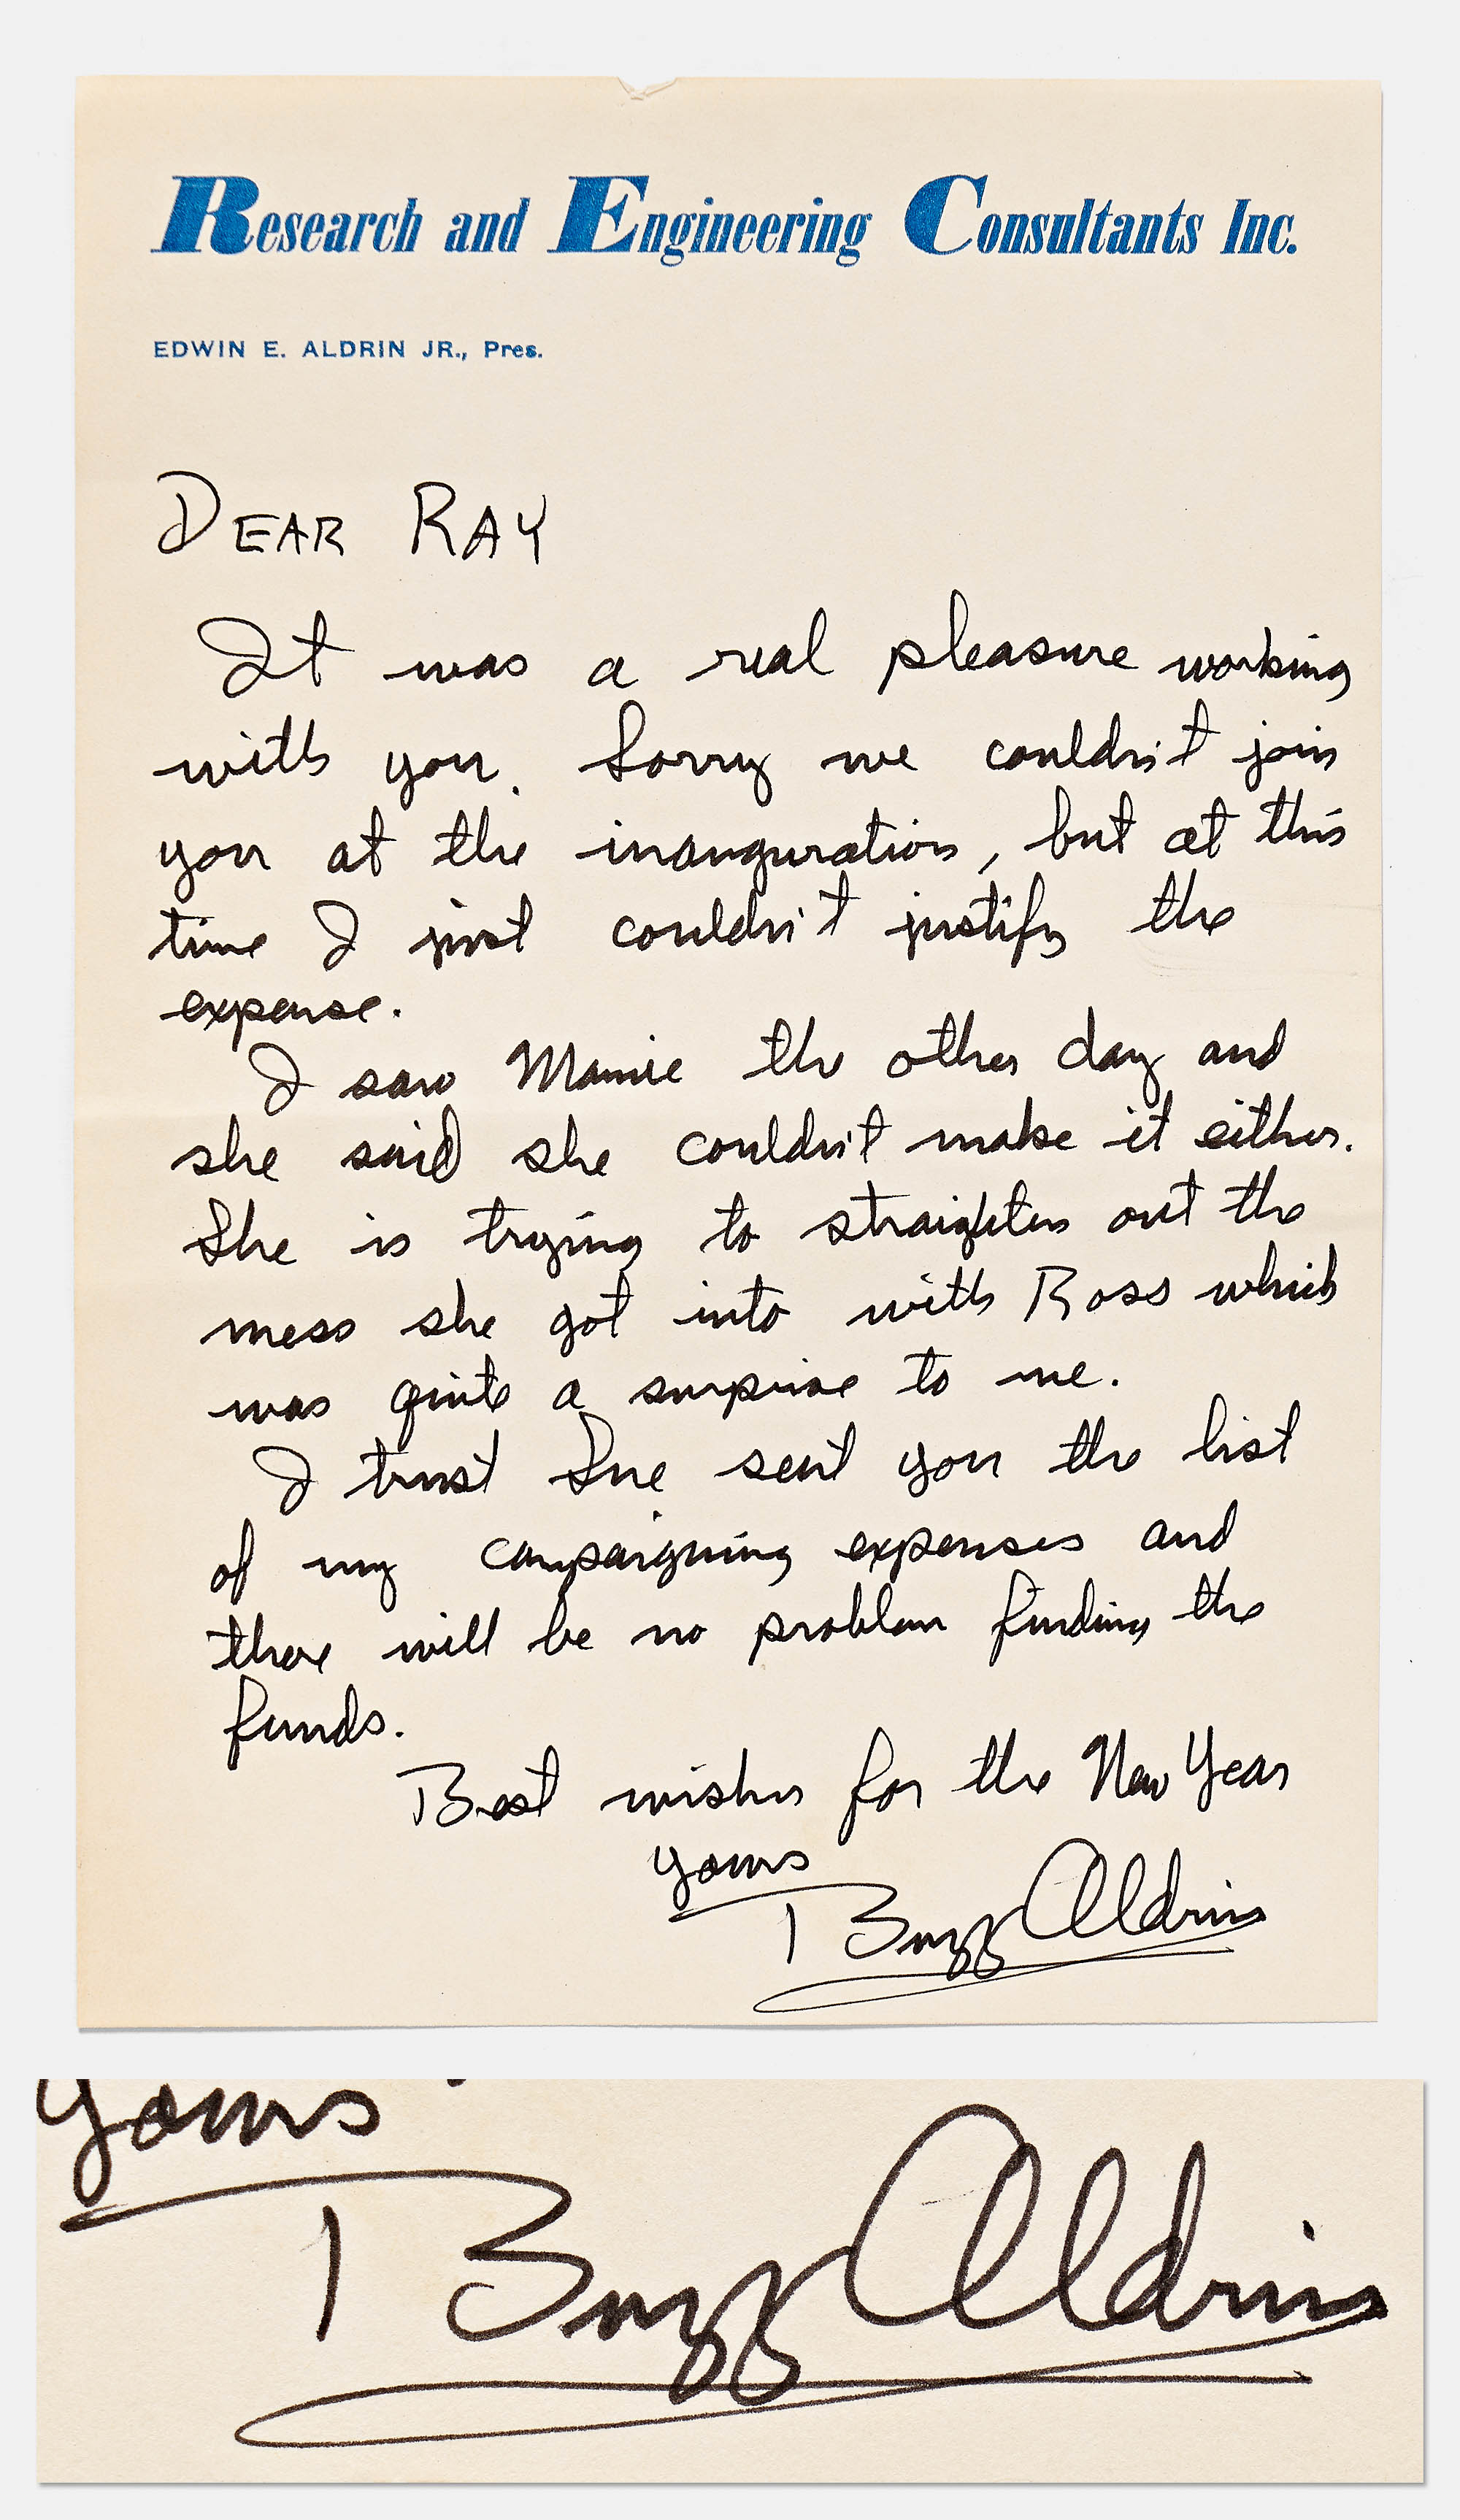 Research and Engineering Consultants Inc.
EDWIN E. ALDRIN JR., Pres.
DEAR RAY
It was a real pleasure working
with you. Sorry we couldn't join
you at the inauguration, but at this
time I just couldn't justify the
expense.
I saw Mamie the other day and
she said she couldn't make it either.
She is trying to straighten out the
mess she got into with Ross which
was quite a surprise to me.
I trust Sue sent you the list
of my campaigning expenses and
there will be no problem finding the
funds.
Best wishes for the New Year
yours
Buzz Aldrin
yours
Buzz Aldrin